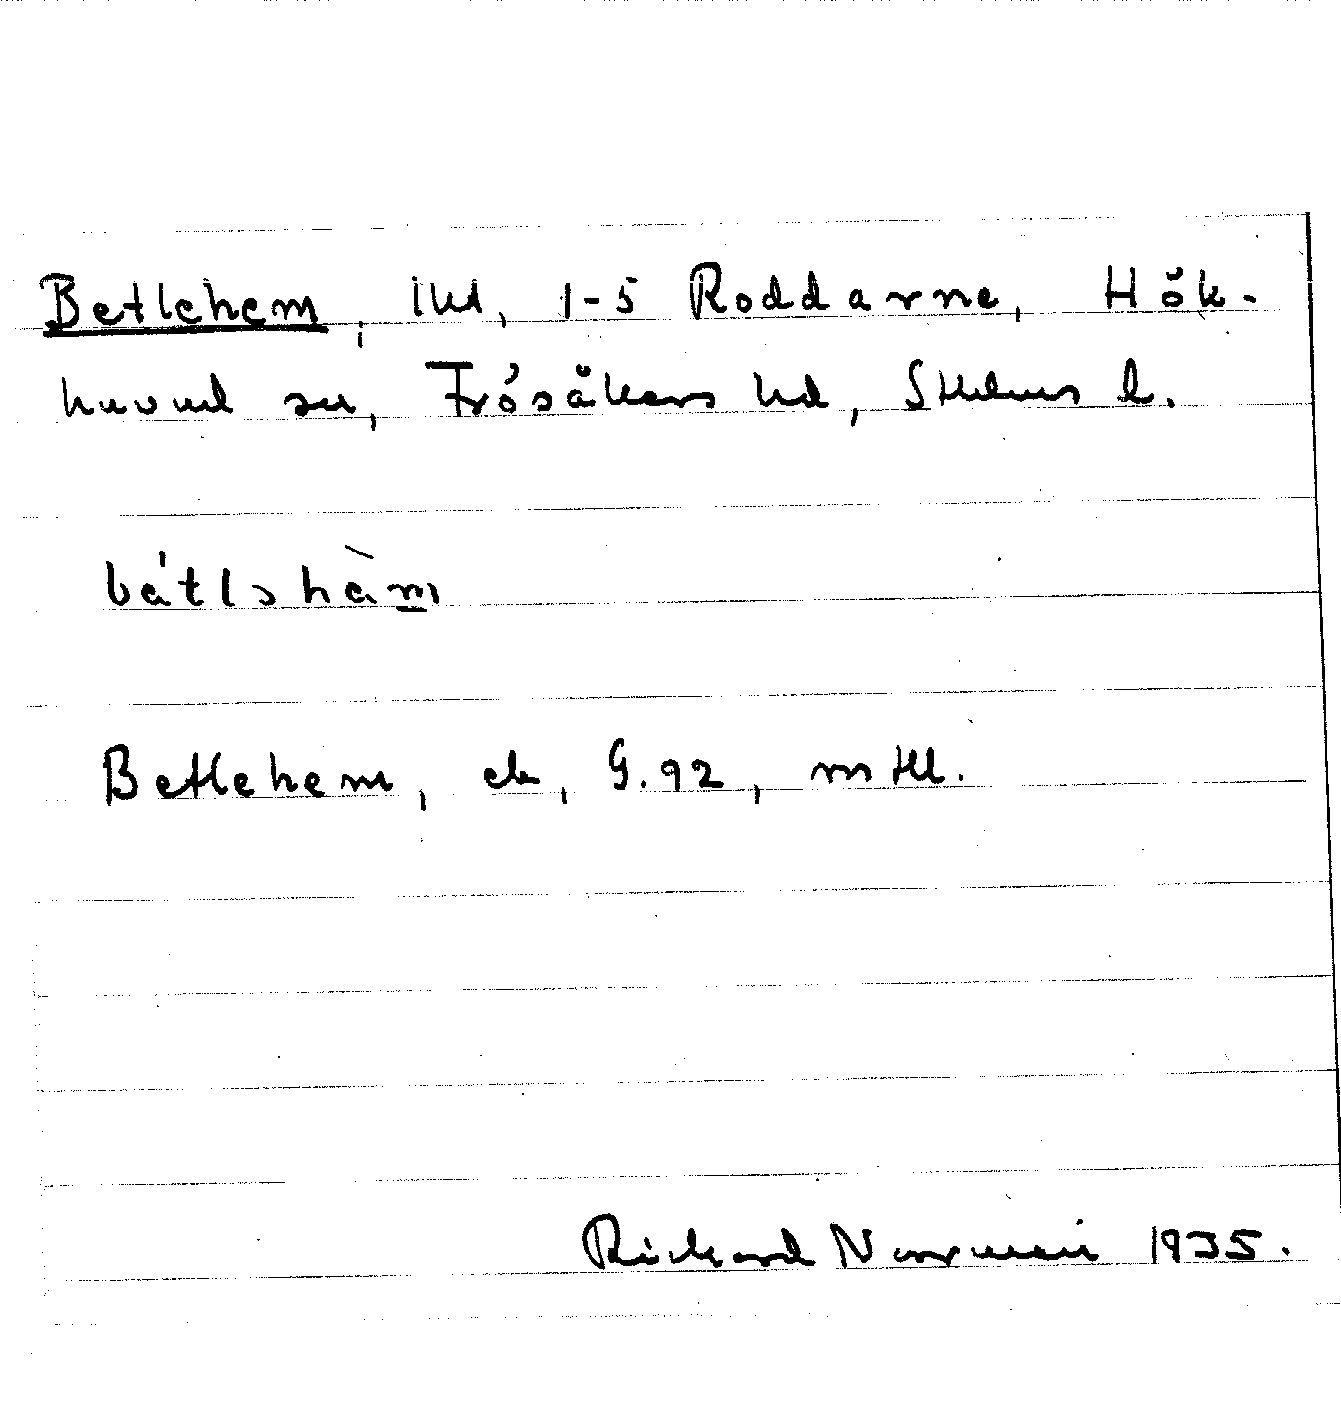 Betlehem, lhl, 1-5 Roddarne, Hök-
huvud sn, Frösåkers hd, Sthlms l.
bátlshàm
Betlehem, ek, G.92, mtl.
Rickard Norrman 1935.